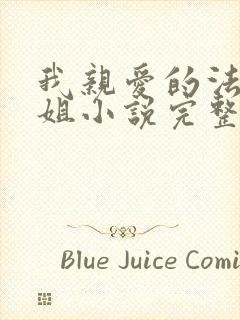 我親愛的法
姐小説完整
Blue Juice Comi